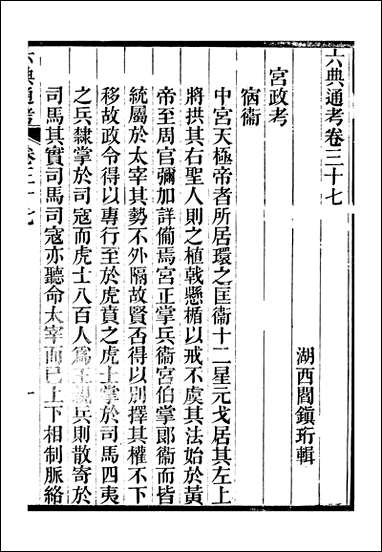 六典通考卷三十七
湖西閻鎮珩輯
宮政考
宿衞
中宮天極帝者所居環之匡衞十二星元戈居其左上
將拱其右聖人則之植戟懸楯以戒不虞其法始於黃
帝至周官彌加詳備焉宮正掌兵衞宮伯掌郞衞而皆
統屬於太宰其勢不外隔故賢否得以別擇其權不下
移故政令得以專行至於虎賁之虎士掌於司馬四夷
之兵隸掌於司寇而虎士八百人爲王親兵則散寄於
司馬其實司馬司寇亦聽命太宰而已上下相制脈絡
六典通考
卷三十七
一